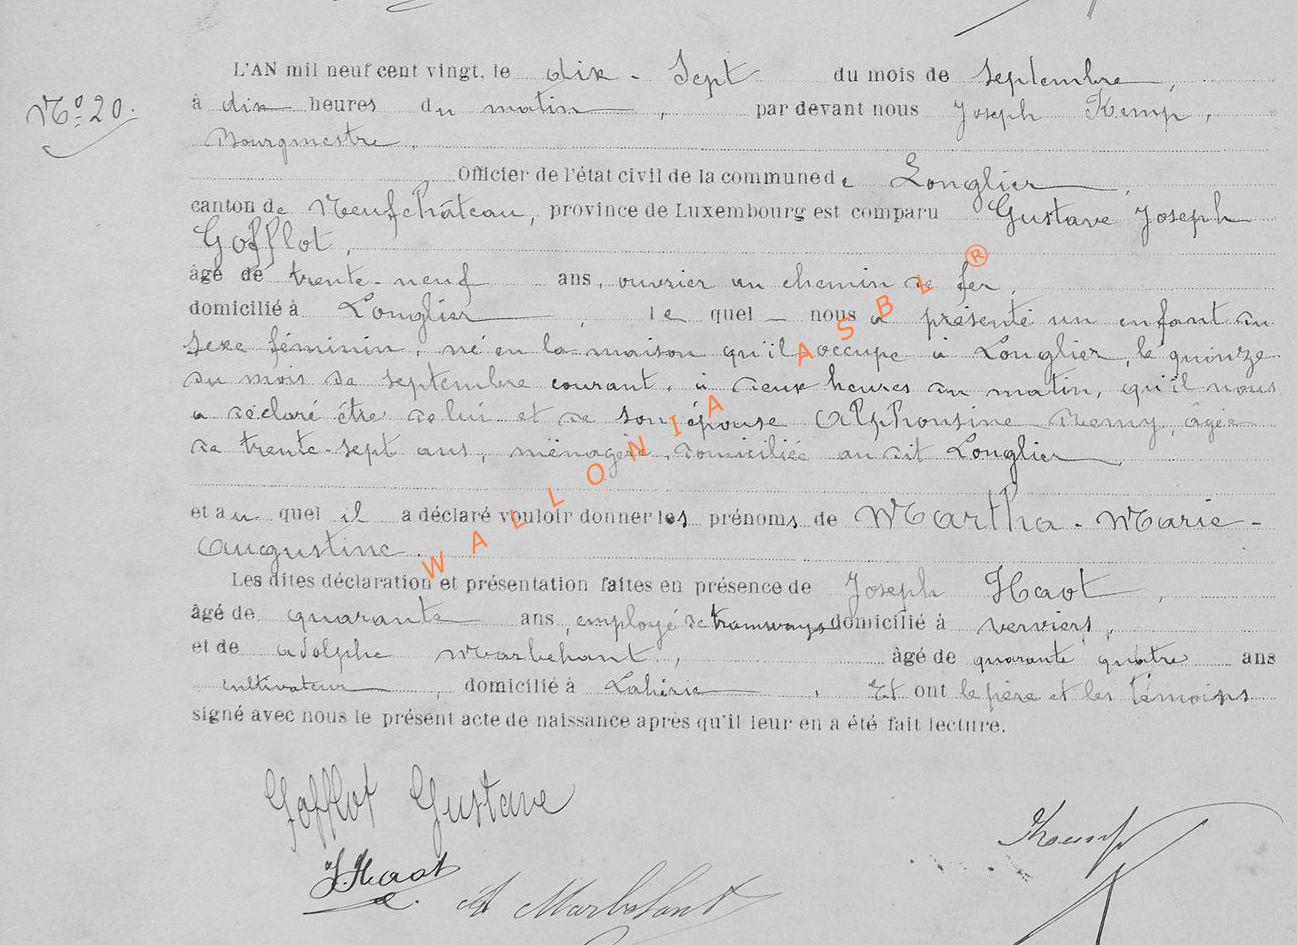 L'AN mil neuf cent vingt, le dix-Sept du mois de septembre,
N° 20. à dix heures du matin, par devant nous Joseph Kemp,
Bourgmestre,
Officier de l'état civil de la commune de Longlier,
canton de Neufchâteau, province de Luxembourg est comparu Gustave Joseph
Gofflot,
âgé de trente-neuf ans, ouvrier au chemin de fer,
domicilié à Longlier, le quel nous a présenté un enfant du
sexe féminin, né en la maison qu'il occupe à Longlier, le quinze
du mois de septembre courant, à deux heures du matin, qu'il nous
a déclaré être de lui et de son épouse Alphonsine Remy, âgée
de trente-sept ans, ménagère, domiciliée au dit Longlier,
et au quel il a déclaré vouloir donner les prénoms de Martha-Marie-
Augustine.
Les dites déclaration et présentation faites en présence de Joseph Haot,
âgé de quarante ans, employé de tramways domicilié à Verviers,
et de Adolphe Marbehant, âgé de quarante quatre ans
cultivateur, domicilié à Lahérie. Et ont le père et les témoins
signé avec nous le présent acte de naissance après qu'il leur en a été fait lecture.
Gofflot Gustave
Kemp
J. Haot
A Marbehant
WALLONIA ASBL ®